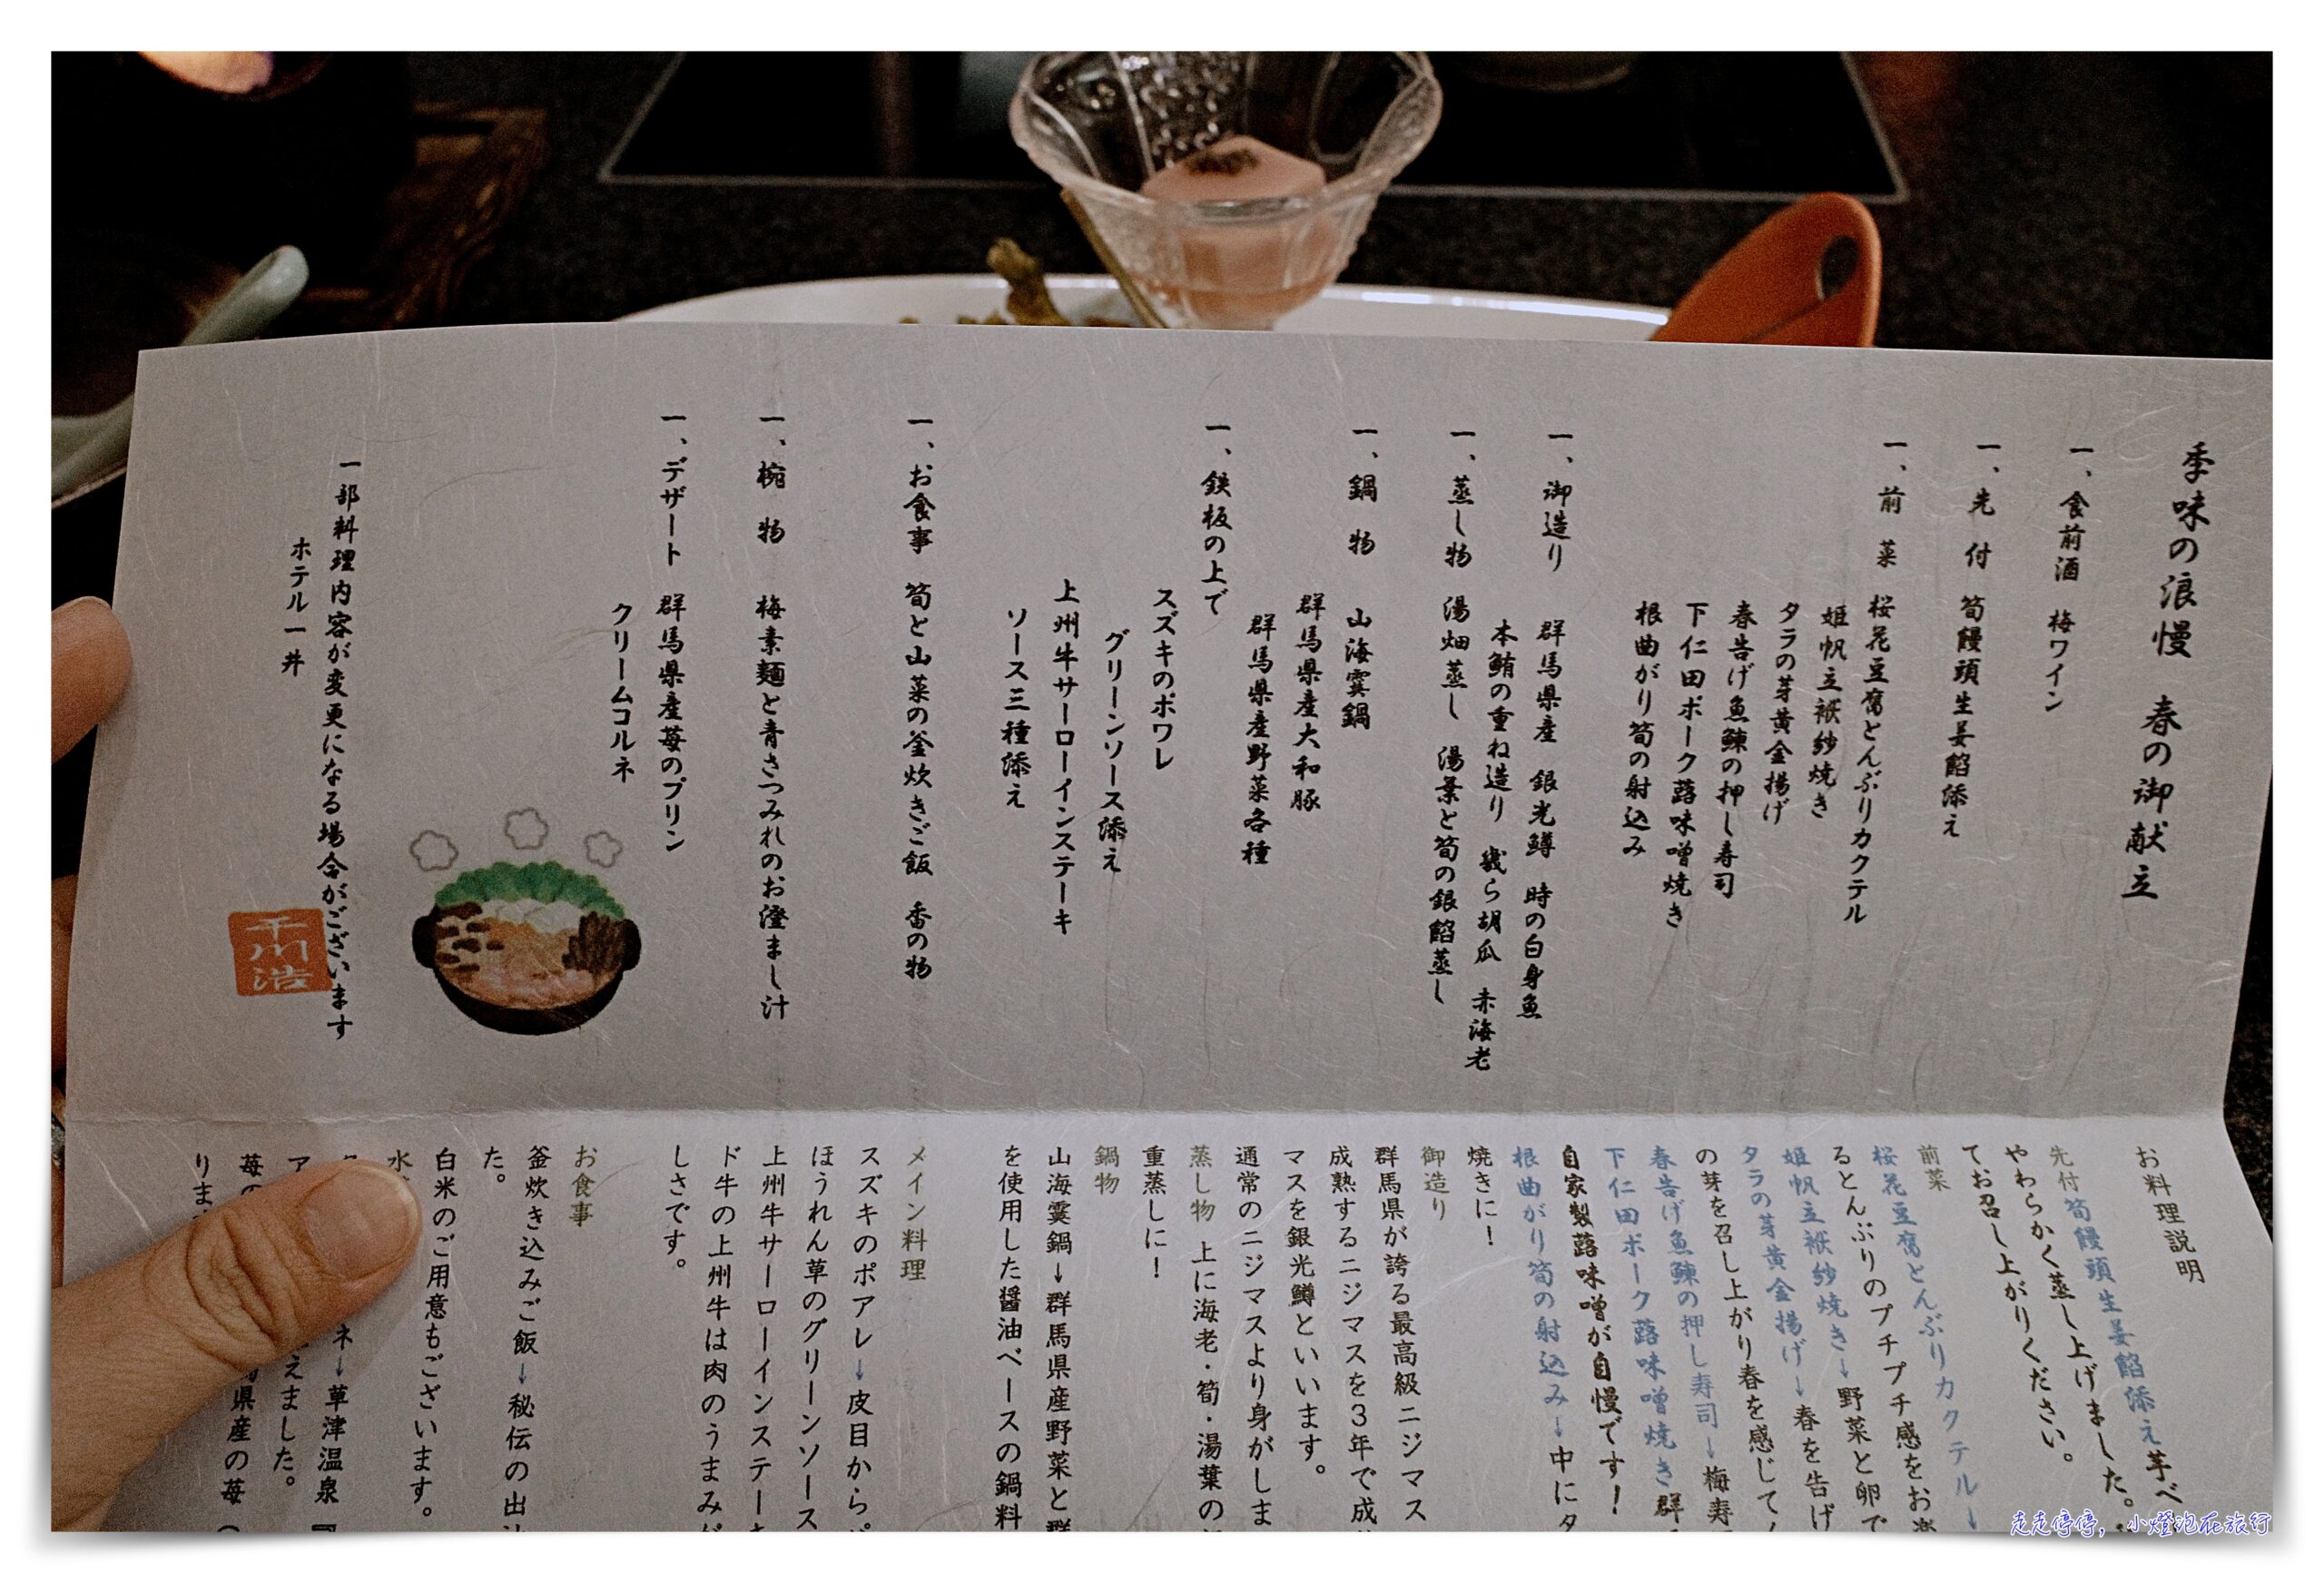 季味の浪慢 春の御献立
一、食前酒 梅ワイン
一、先付 筍饅頭生姜餡添え
一、前菜 桜花豆腐とんぶりカクテル
姫帆立袱紗焼き
タラの芽黄金揚げ
春告げ魚鰊の押し寿司
下仁田ポーク蕗味噌焼き
根曲がり筍の射込み
一、御造り 群馬県産 銀光鱒 時の白身魚
本鮪の重ね造り 幾ら胡瓜 赤海老
一、蒸し物 湯畑蒸し 湯葉と筍の銀餡蒸し
一、鍋物 山海霙鍋
群馬県産大和豚
群馬県産野菜各種
一、鉄板の上で
スズキのポワレ
グリーンソース添え
上州牛サーロインステーキ
ソース三種添え
一、お食事 筍と山菜の釜炊きご飯 香の物
一、椀物 梅素麺と青さつみれのお澄まし汁
一、デザート 群馬県産苺のプリン
クリームコルネ
一部料理内容が変更になる場合がございます
ホテル一井
干川浩
お料理説明
先付筍饅頭生姜餡添え芋べ
やわらかく蒸し上げました。
てお召し上がりください。
前菜
桜花豆腐とんぶりカクテル→
るとんぶりのプチプチ感をお楽
姫帆立袱紗焼き→野菜と卵で
タラの芽黄金揚げ→春を告げ
の芽を召し上がり春を感じて
春告げ魚鰊の押し寿司→梅寿
下仁田ポーク蕗味噌焼き群
自家製蕗味噌が自慢です！
根曲がり筍の射込み→中にタ
焼きに！
御造り
群馬県が誇る最高級ニジマス
成熟するニジマスを3年で成
マスを銀光鱒といいます。
通常のニジマスより身がしま
蒸し物 上に海老・筍・湯葉の
重蒸しに！
鍋物
山海霙鍋→群馬県産野菜と群
を使用した醤油ベースの鍋料
メイン料理
スズキのポアレ→皮目から
ほうれん草のグリーンソース
上州牛サーロインステー
ド牛の上州牛は肉のうまみが
しさです。
お食事
釜炊き込みご飯→秘伝の出
た。
白米のご用意もございます。
水
ネ→草津温泉
えました。
苺の 県産の苺（
りま
走走停停，小燈泡在旅行